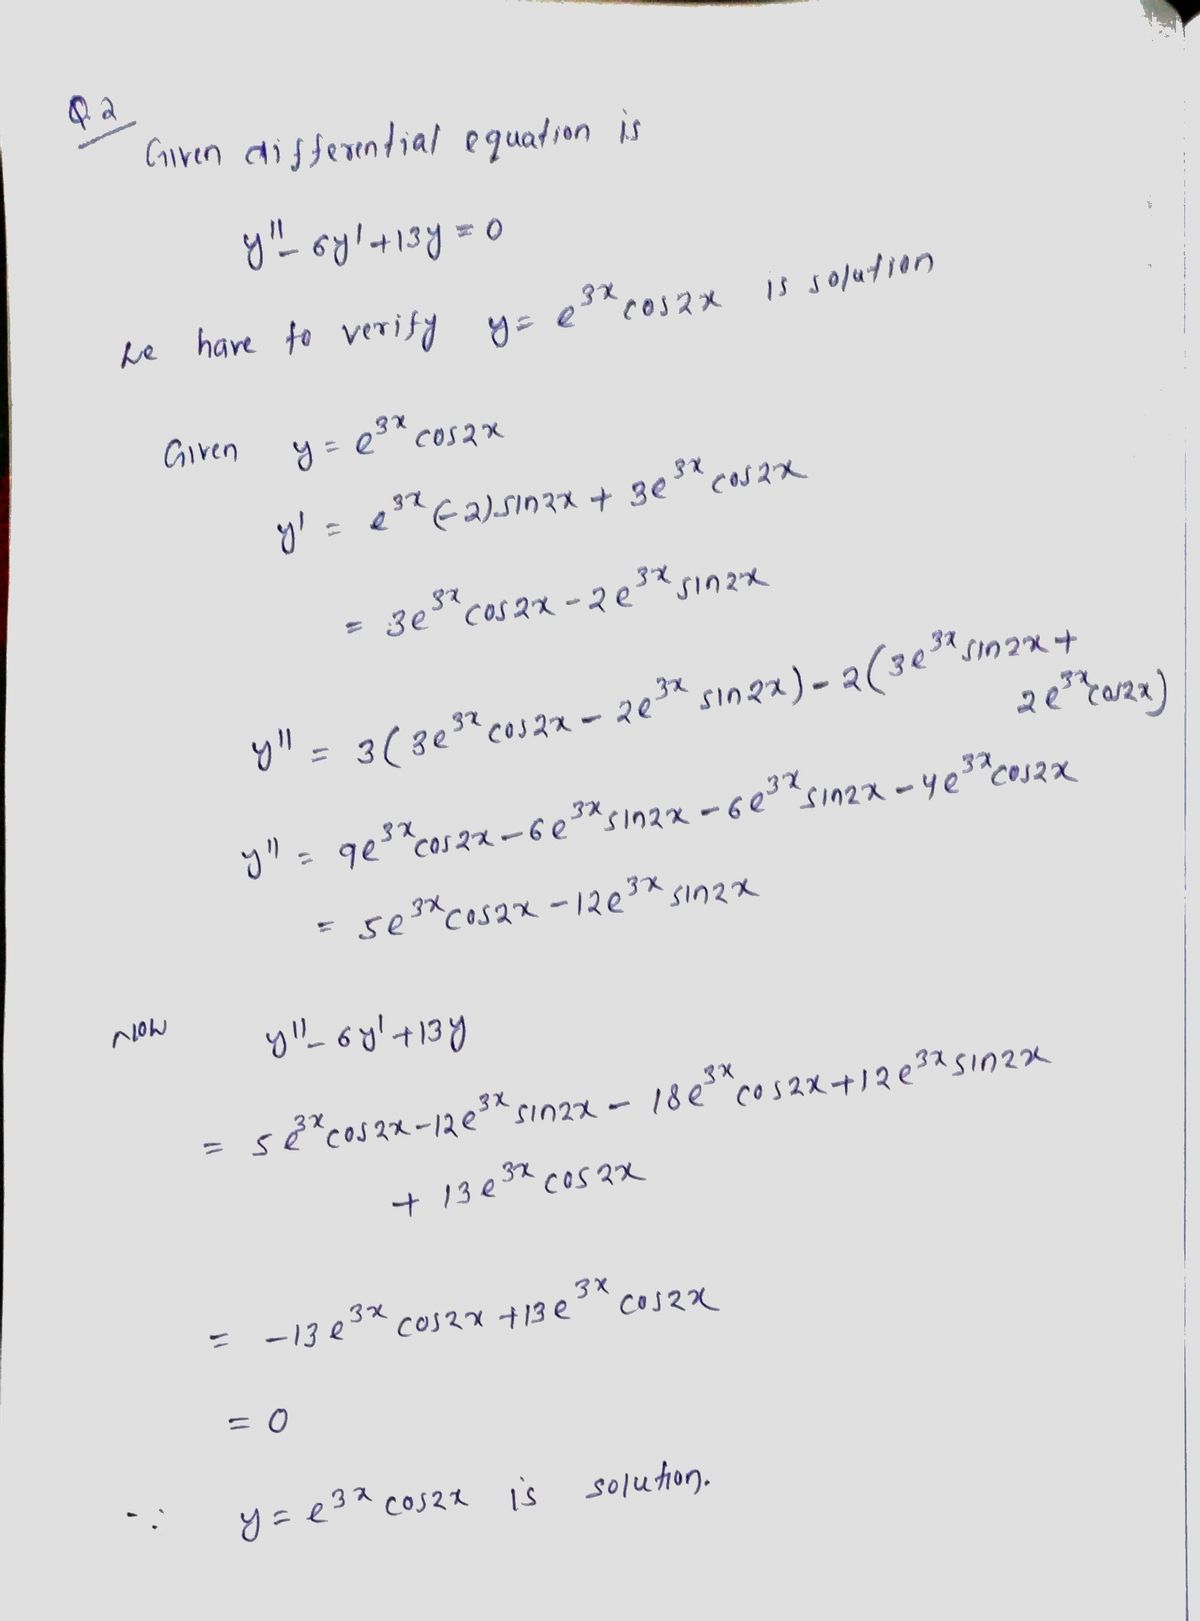 Q.2
Given differential equation is
y'' - 6y' + 13y = 0
we have to verify y = e^{3x} cos2x is solution
Given y = e^{3x} cos2x
y' = e^{3x} (-2) sin2x + 3e^{3x} cos2x
= 3e^{3x} cos2x - 2e^{3x} sin2x
y'' = 3(3e^{3x} cos2x - 2e^{3x} sin2x) - 2(3e^{3x} sin2x +
2e^{3x} cos2x)
y'' = 9e^{3x} cos2x - 6e^{3x} sin2x - 6e^{3x} sin2x - 4e^{3x} cos2x
= 5e^{3x} cos2x - 12e^{3x} sin2x
Now y'' - 6y' + 13y
= 5e^{3x} cos2x - 12e^{3x} sin2x - 18e^{3x} cos2x + 12e^{3x} sin2x
+ 13e^{3x} cos2x
= -13e^{3x} cos2x + 13e^{3x} cos2x
= 0
∵ y = e^{3x} cos2x is solution.